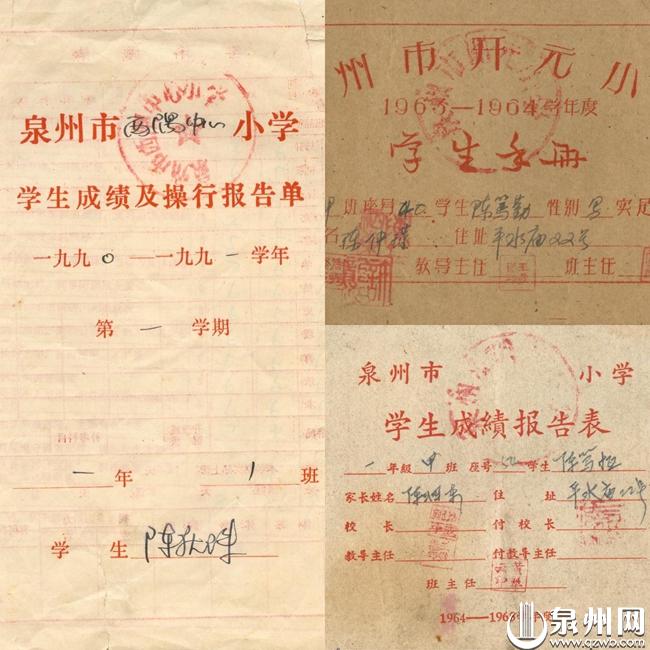 泉州市西隅中心小学
学生成绩及操行报告单
一九九0—一九九一学年
第一学期
一年1班
学生陈
州市开元小
1963—1964学年度
学生手册
甲班座号40学生陈笃勤性别男实足
名陈仲 住址平水庙22号
教导主任 班主任
泉州市 小学
学生成绩报告表
一年级甲班座号 学生陈笃
家长姓名陈 住址平水庙22号
校长 付校长
教导主任 付教导主任
班主任
1964—196 年度
泉州网
www.qzwb.com